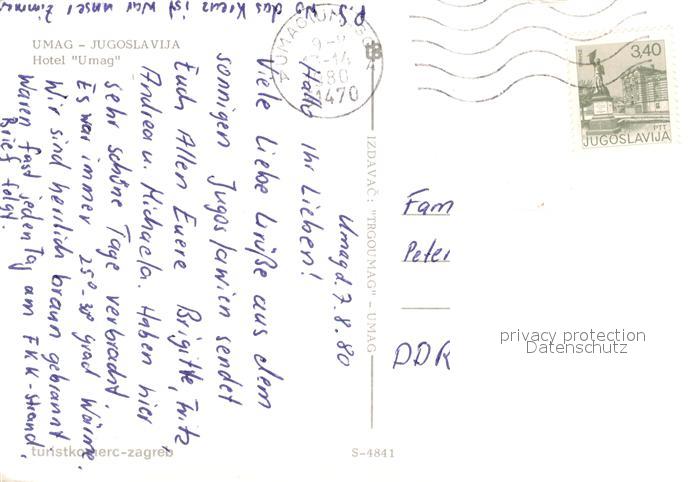 P.S. Wo das Kreuz ist war unser Zimmer
UMAG – JUGOSLAVIJA
Hotel "Umag"
Umag d. 7.8.80
Hallo Ihr Lieben!
Viele Liebe Grüße aus dem
sonnigen Jugoslawien sendet
Euch Allen Euere Brigitte, Fritz,
Andrea u. Michaela. Haben hier
sehr schöne Tage verbracht.
Es war immer 25°-30° grad Wärme.
Wir sind herrlich braun gebrannt
waren fast jeden Tag am FKK-Strand.
Brief folgt.
IZDAVAČ: "TRGOUMAG" – UMAG
turistkomerc-zagreb
S-4841
9-8
80
3,40
PTT
JUGOSLAVIJA
Fam
Peter
DDR
privacy protection
Datenschutz